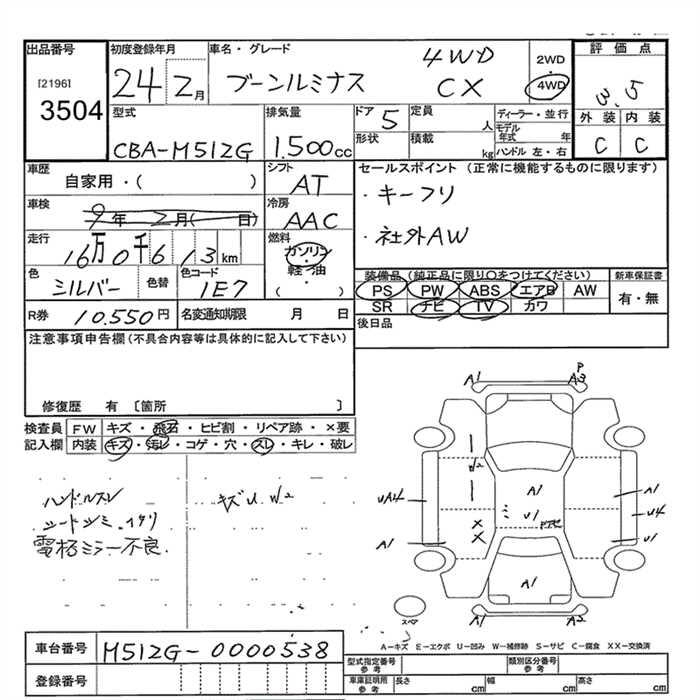 出品番号
[2196]
3504
初度登録年月
24 2月
車名・グレード
ブーンルミナス
4WD
CX
2WD
4WD
評価点
3.5
外装 内装
C C
型式
CBA-M512G
排気量
1.500cc
ドア
5
形状
定員 人
積載 kg
ディーラー・並行
モデル年式 年
ハンドル 左・右
車歴
自家用・( )
シフト
AT
セールスポイント(正常に機能するものに限ります)
・キーフリ
・社外AW
車検
9年 2月( 日)
冷房
AAC
走行
16万0千613km
燃料
ガソリン
・
軽・油
( )
色
シルバー
色替
色コード
1E7
装備品(純正品に限り○をつけてください)
PS PW ABS エアB AW
SR ナビ TV カワ
新車保証書
有・無
R券
10.550円
名変通知期限
月 日
後日品
注意事項申告欄(不具合内容等は具体的に記入して下さい)
修復歴 有 〔箇所 〕
検査員記入欄
FW キズ・飛石・ヒビ割・リペア跡・×要
内装 キズ・汚レ・コゲ・穴・スレ・キレ・破レ
ハンドルスレ
シートシミ.
電格ミラー不良
キズU W2
A1
P
A3
W2
UA4
A1
A1
U1
ドアセ
×
×
A1
U4
U1
A1
A1
A2
スペア
A−キズ E−エクボ U−凹み W−補修跡 S−サビ C−腐食 XX−交換済
車台番号
M512G-0000538
登録番号
型式指定番号
参考
類別区分番号
参考
車庫証明用
参考
長さ cm
幅 cm
高さ cm